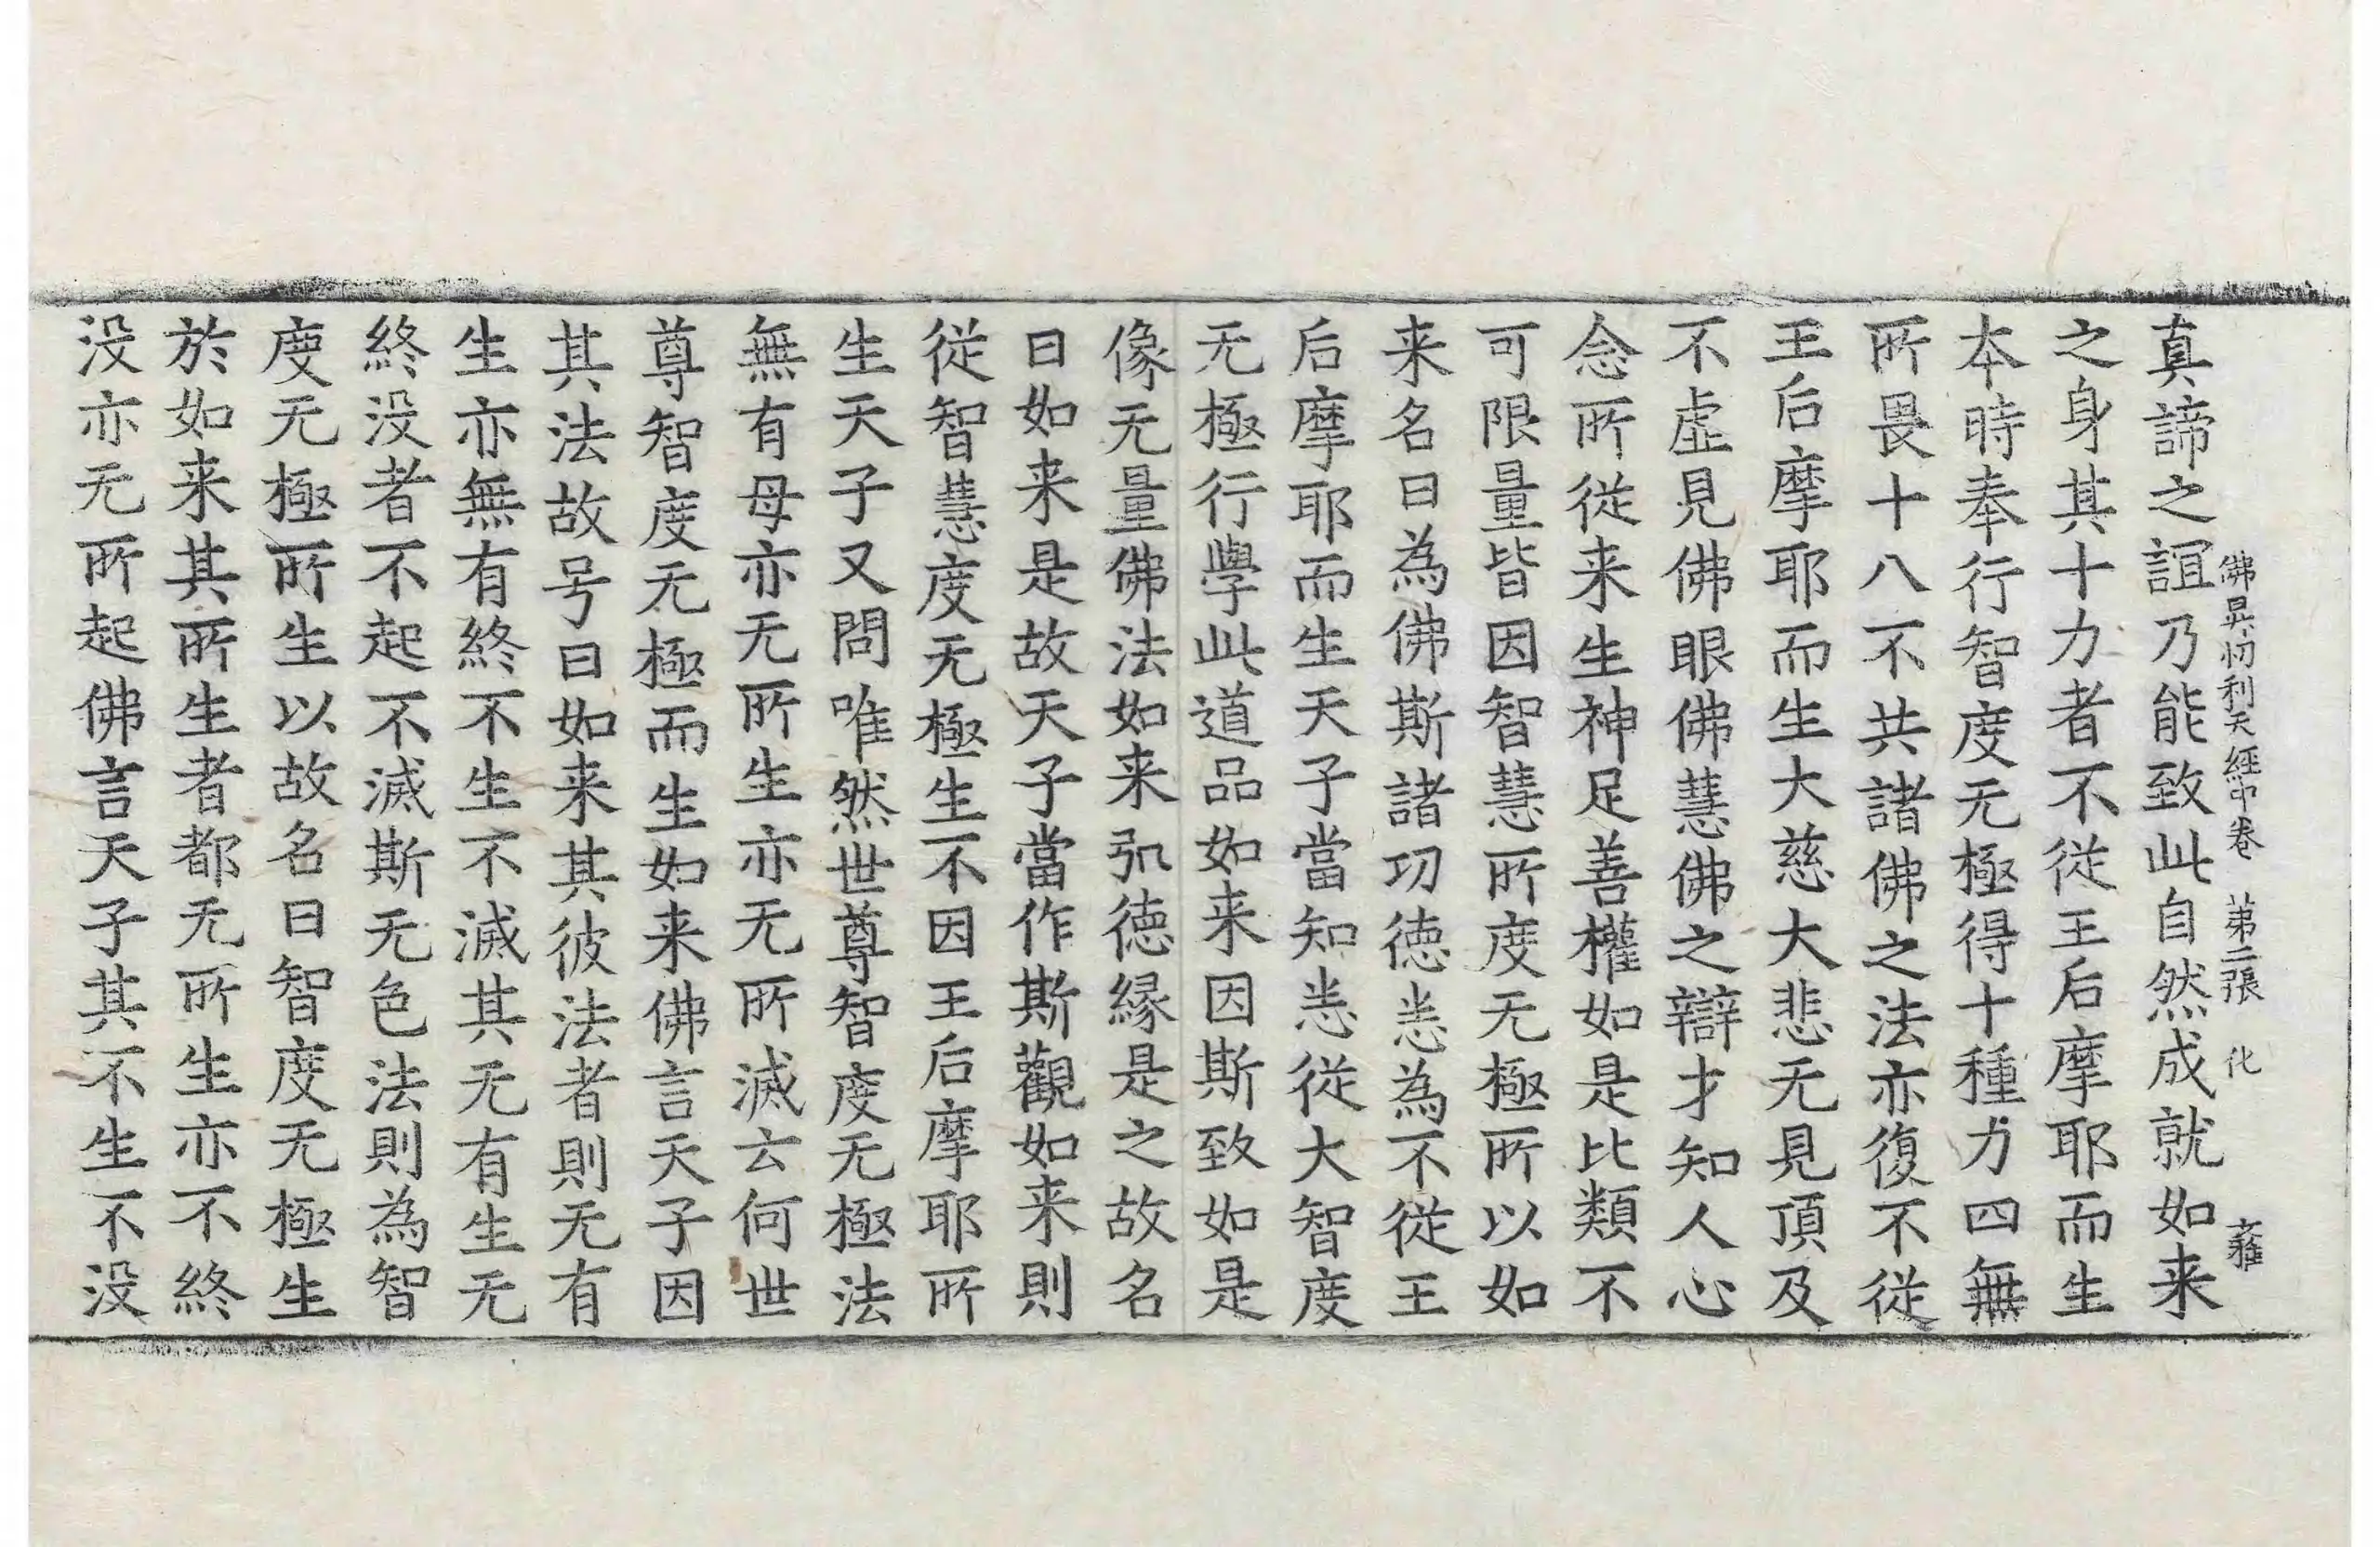 佛昇忉利天經中卷 第二張 化
真諦之誼乃能致此自然成就如来
之身其十力者不従王后摩耶而生
本時奉行智度无極得十種力四無
所畏十八不共諸佛之法亦復不従
王后摩耶而生大慈大悲无見頂及
不虛見佛眼佛慧佛之辯才知人心
念所従来生神足善權如是比類不
可限量皆因智慧所度无極所以如
来名曰為佛斯諸功徳恙為不従王
后摩耶而生天子當知恙従大智度
无極行學此道品如来因斯致如是
像无量佛法如来弘徳縁是之故名
曰如来是故天子當作斯觀如来則
従智慧度无極生不因王后摩耶所
生天子又問唯然世尊智度无極法
無有母亦无所生亦无所滅云何世
尊智度无極而生如来佛言天子因
其法故号曰如来其彼法者則无有
生亦無有終不生不滅其无有生无
終没者不起不滅斯无色法則為智
度无極所生以故名曰智度无極生
於如来其所生者都无所生亦不終
没亦无所起佛言天子其不生不没